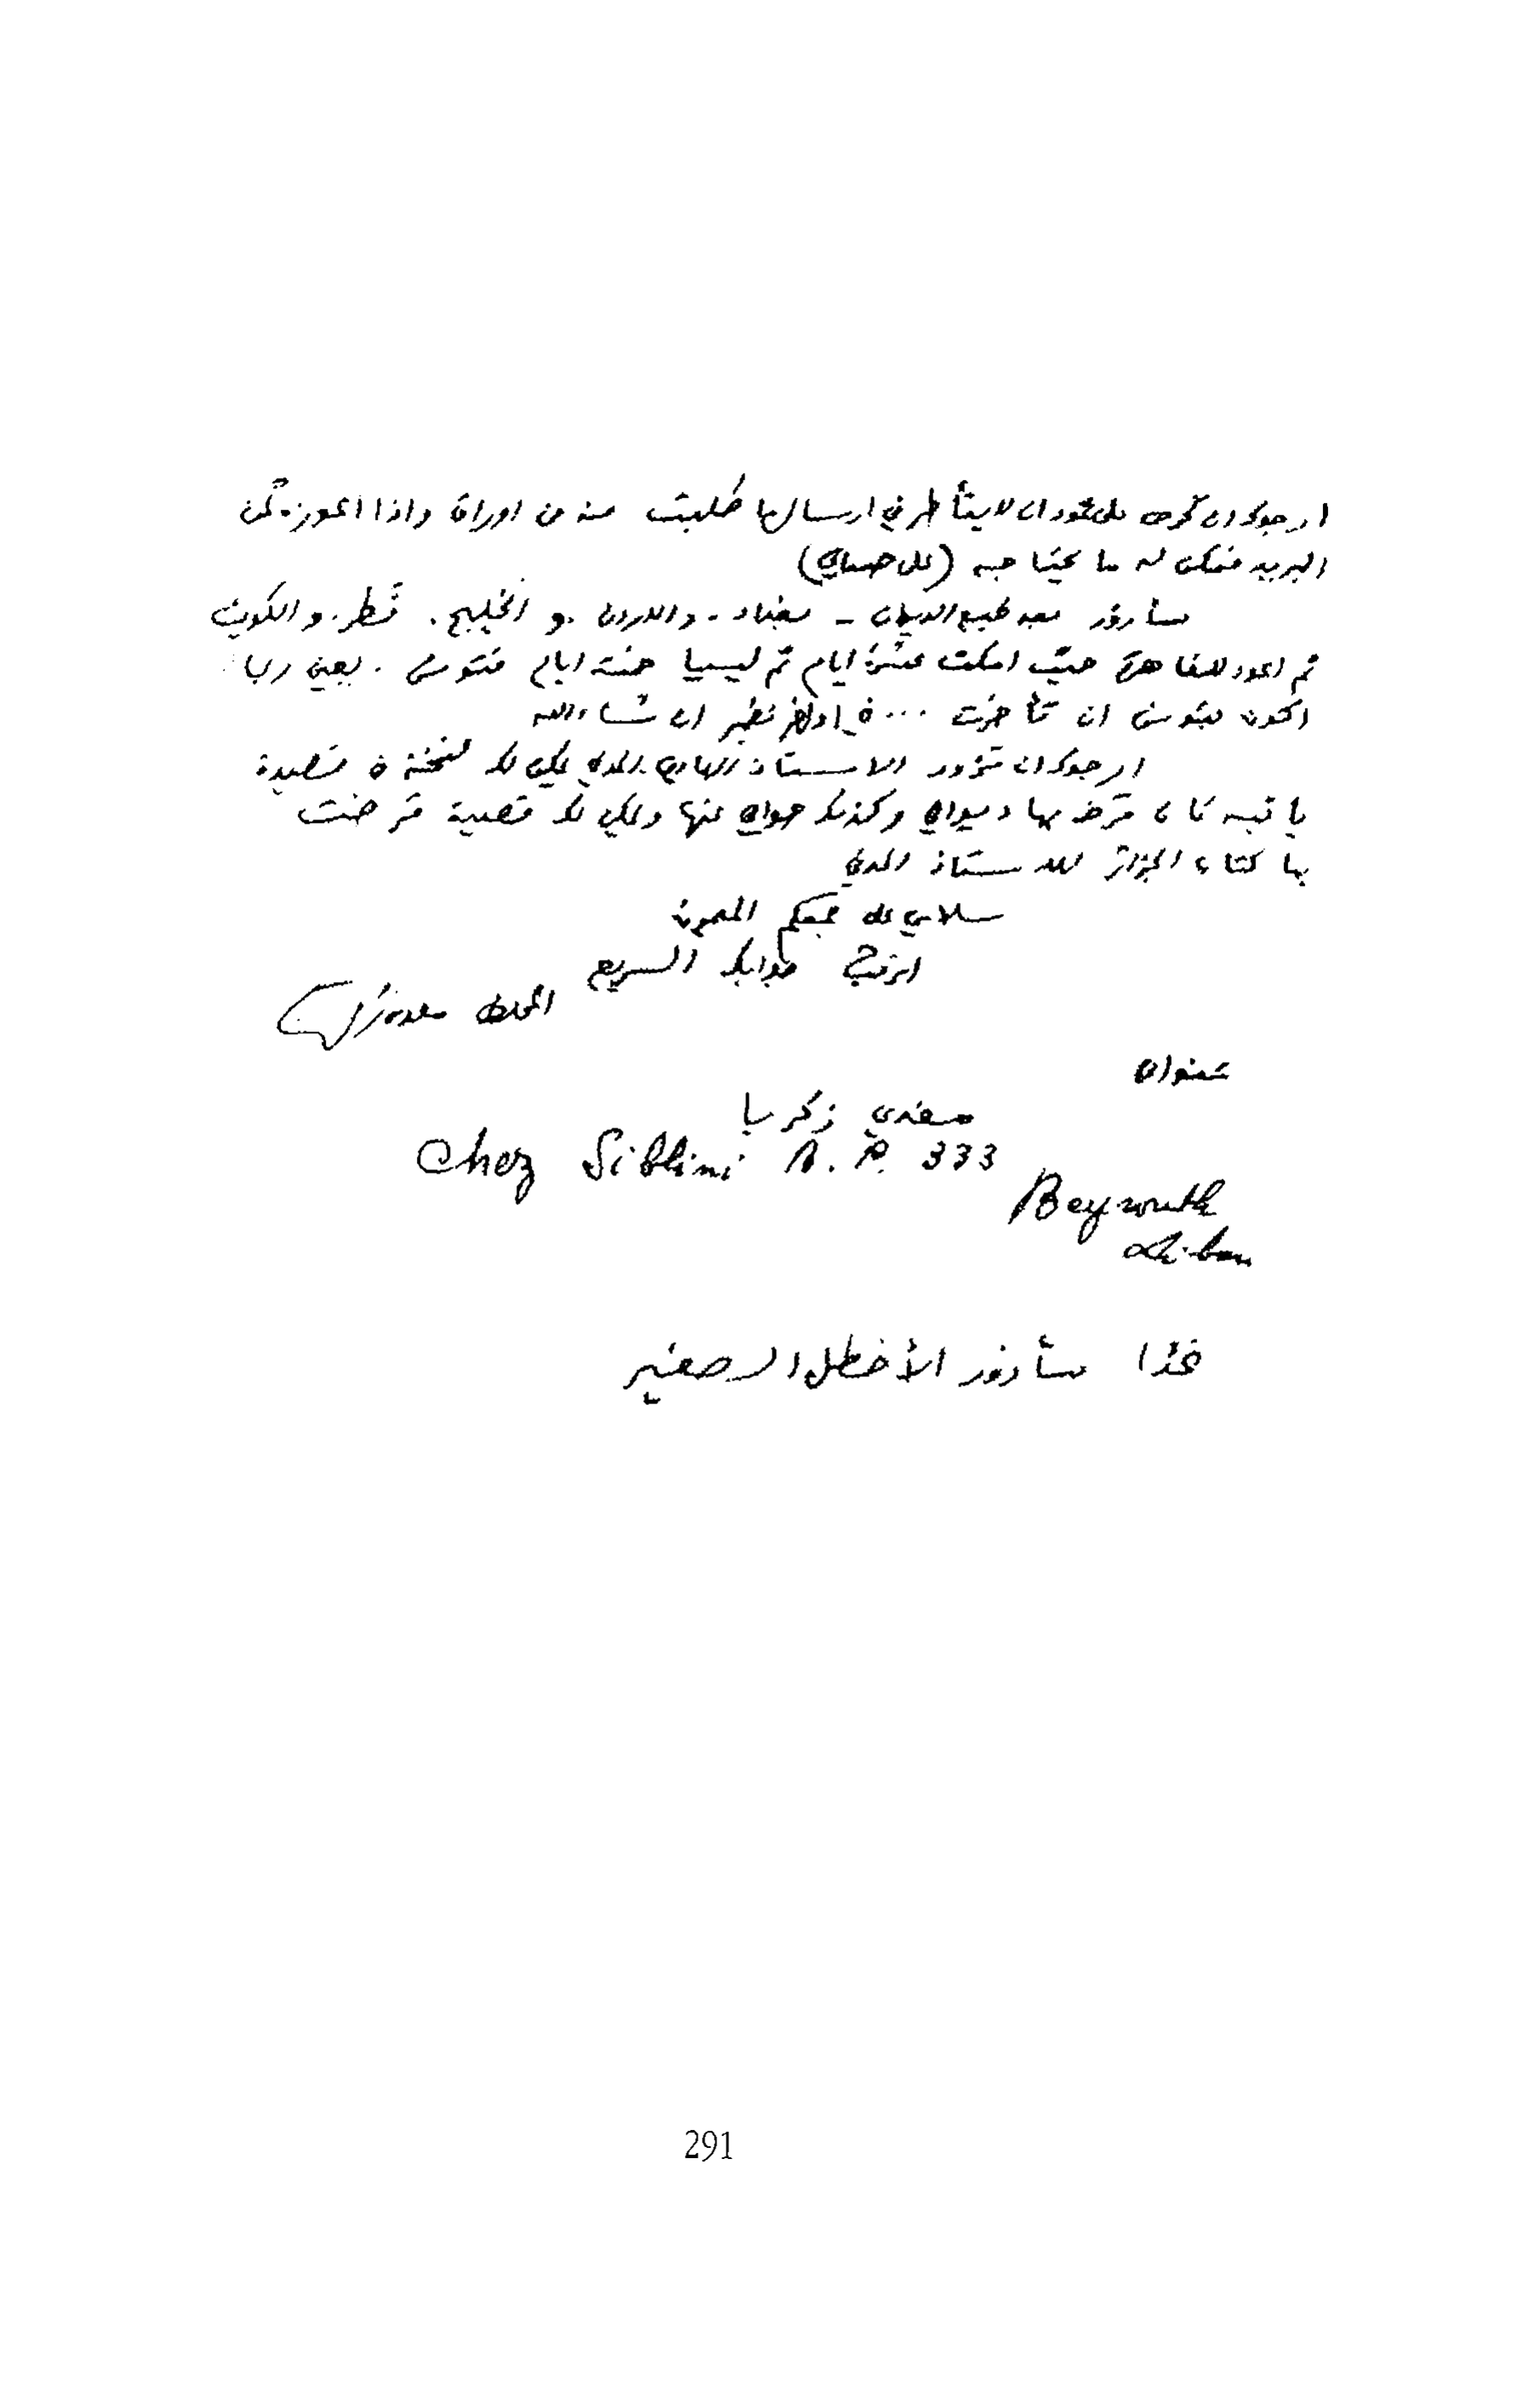 ارجوك ان تحرص على محمود ان لا يتأخر في ارسال ما طلبت منه من اوراق واذا اعوزه ثمن
البريد فمكن له ما يحتاجه (على حسابي)
سأزور بعد طبع الديوان - بغداد. والاردن. و الخليج. قطر. والكويت
ثم اعود للقاهرة حيث امكث عشرة ايام ثم ليبيا خمسة ايام فتونس. يعني ربما
اكون بتونس ان تأخرت ... في اواخر ان شاء الله
ارجوك ان تزور الاستاذ الهادي المدني يملي لك نسخة قصيدة
ياتيه كان قرض بها ديواني وكذلك جوابي عنها ويملي لك قصيدة قرضت
بها كتاب الجزائر للاستاذ المدني
سلامي على جمعكم المصون
ارتقب جوابك السريع
المخلص
عنواني
مفدي زكريا
Chez Siblini B.P. 333
Beyrouth
Liban
غدًا سأزور الأخطل الصغير
291